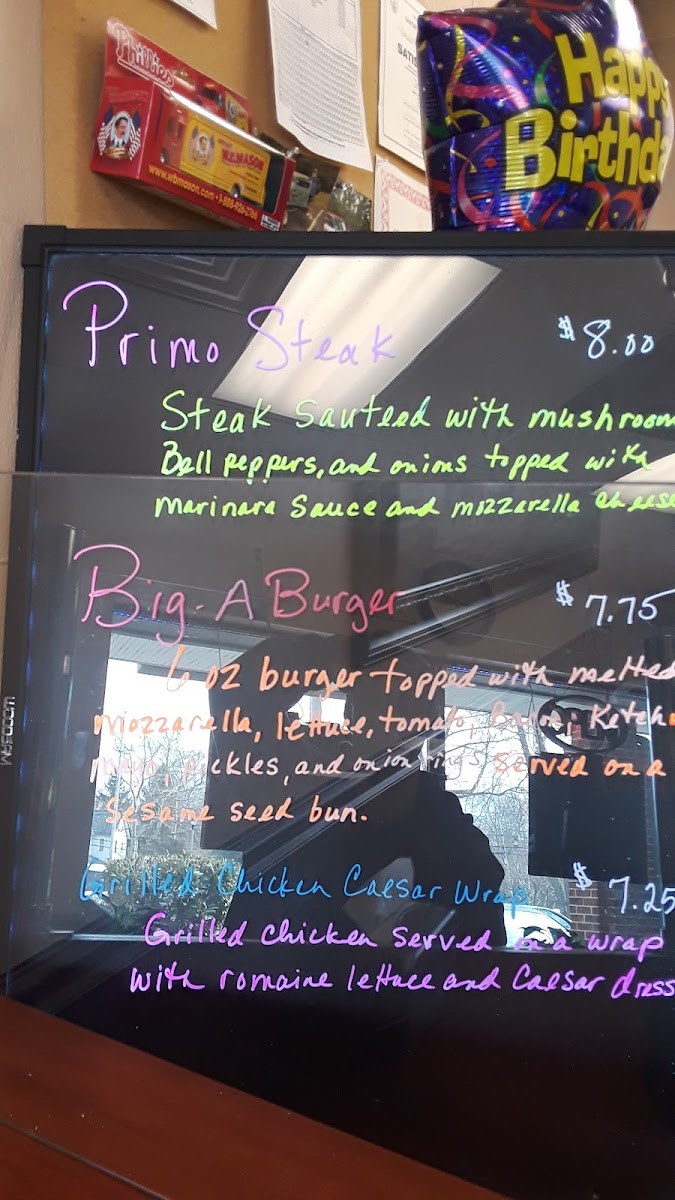 Phillies
W.B. MASON
www.wbmason.com • 1-888-926-2766
Happy
Birthd
Primo Steak $8.00
Steak Sauteed with mushroom
Bell peppers, and onions topped with
marinara sauce and mozzarella cheese
Big-A Burger $7.75
6 oz burger topped with melted
mozzarella, lettuce, tomato, Bacon, Ketch
mayo, pickles, and onion rings served on a
Sesame seed bun.
Grilled Chicken Caesar Wrap $7.25
Grilled chicken served in a wrap
with romaine lettuce and Caesar dress